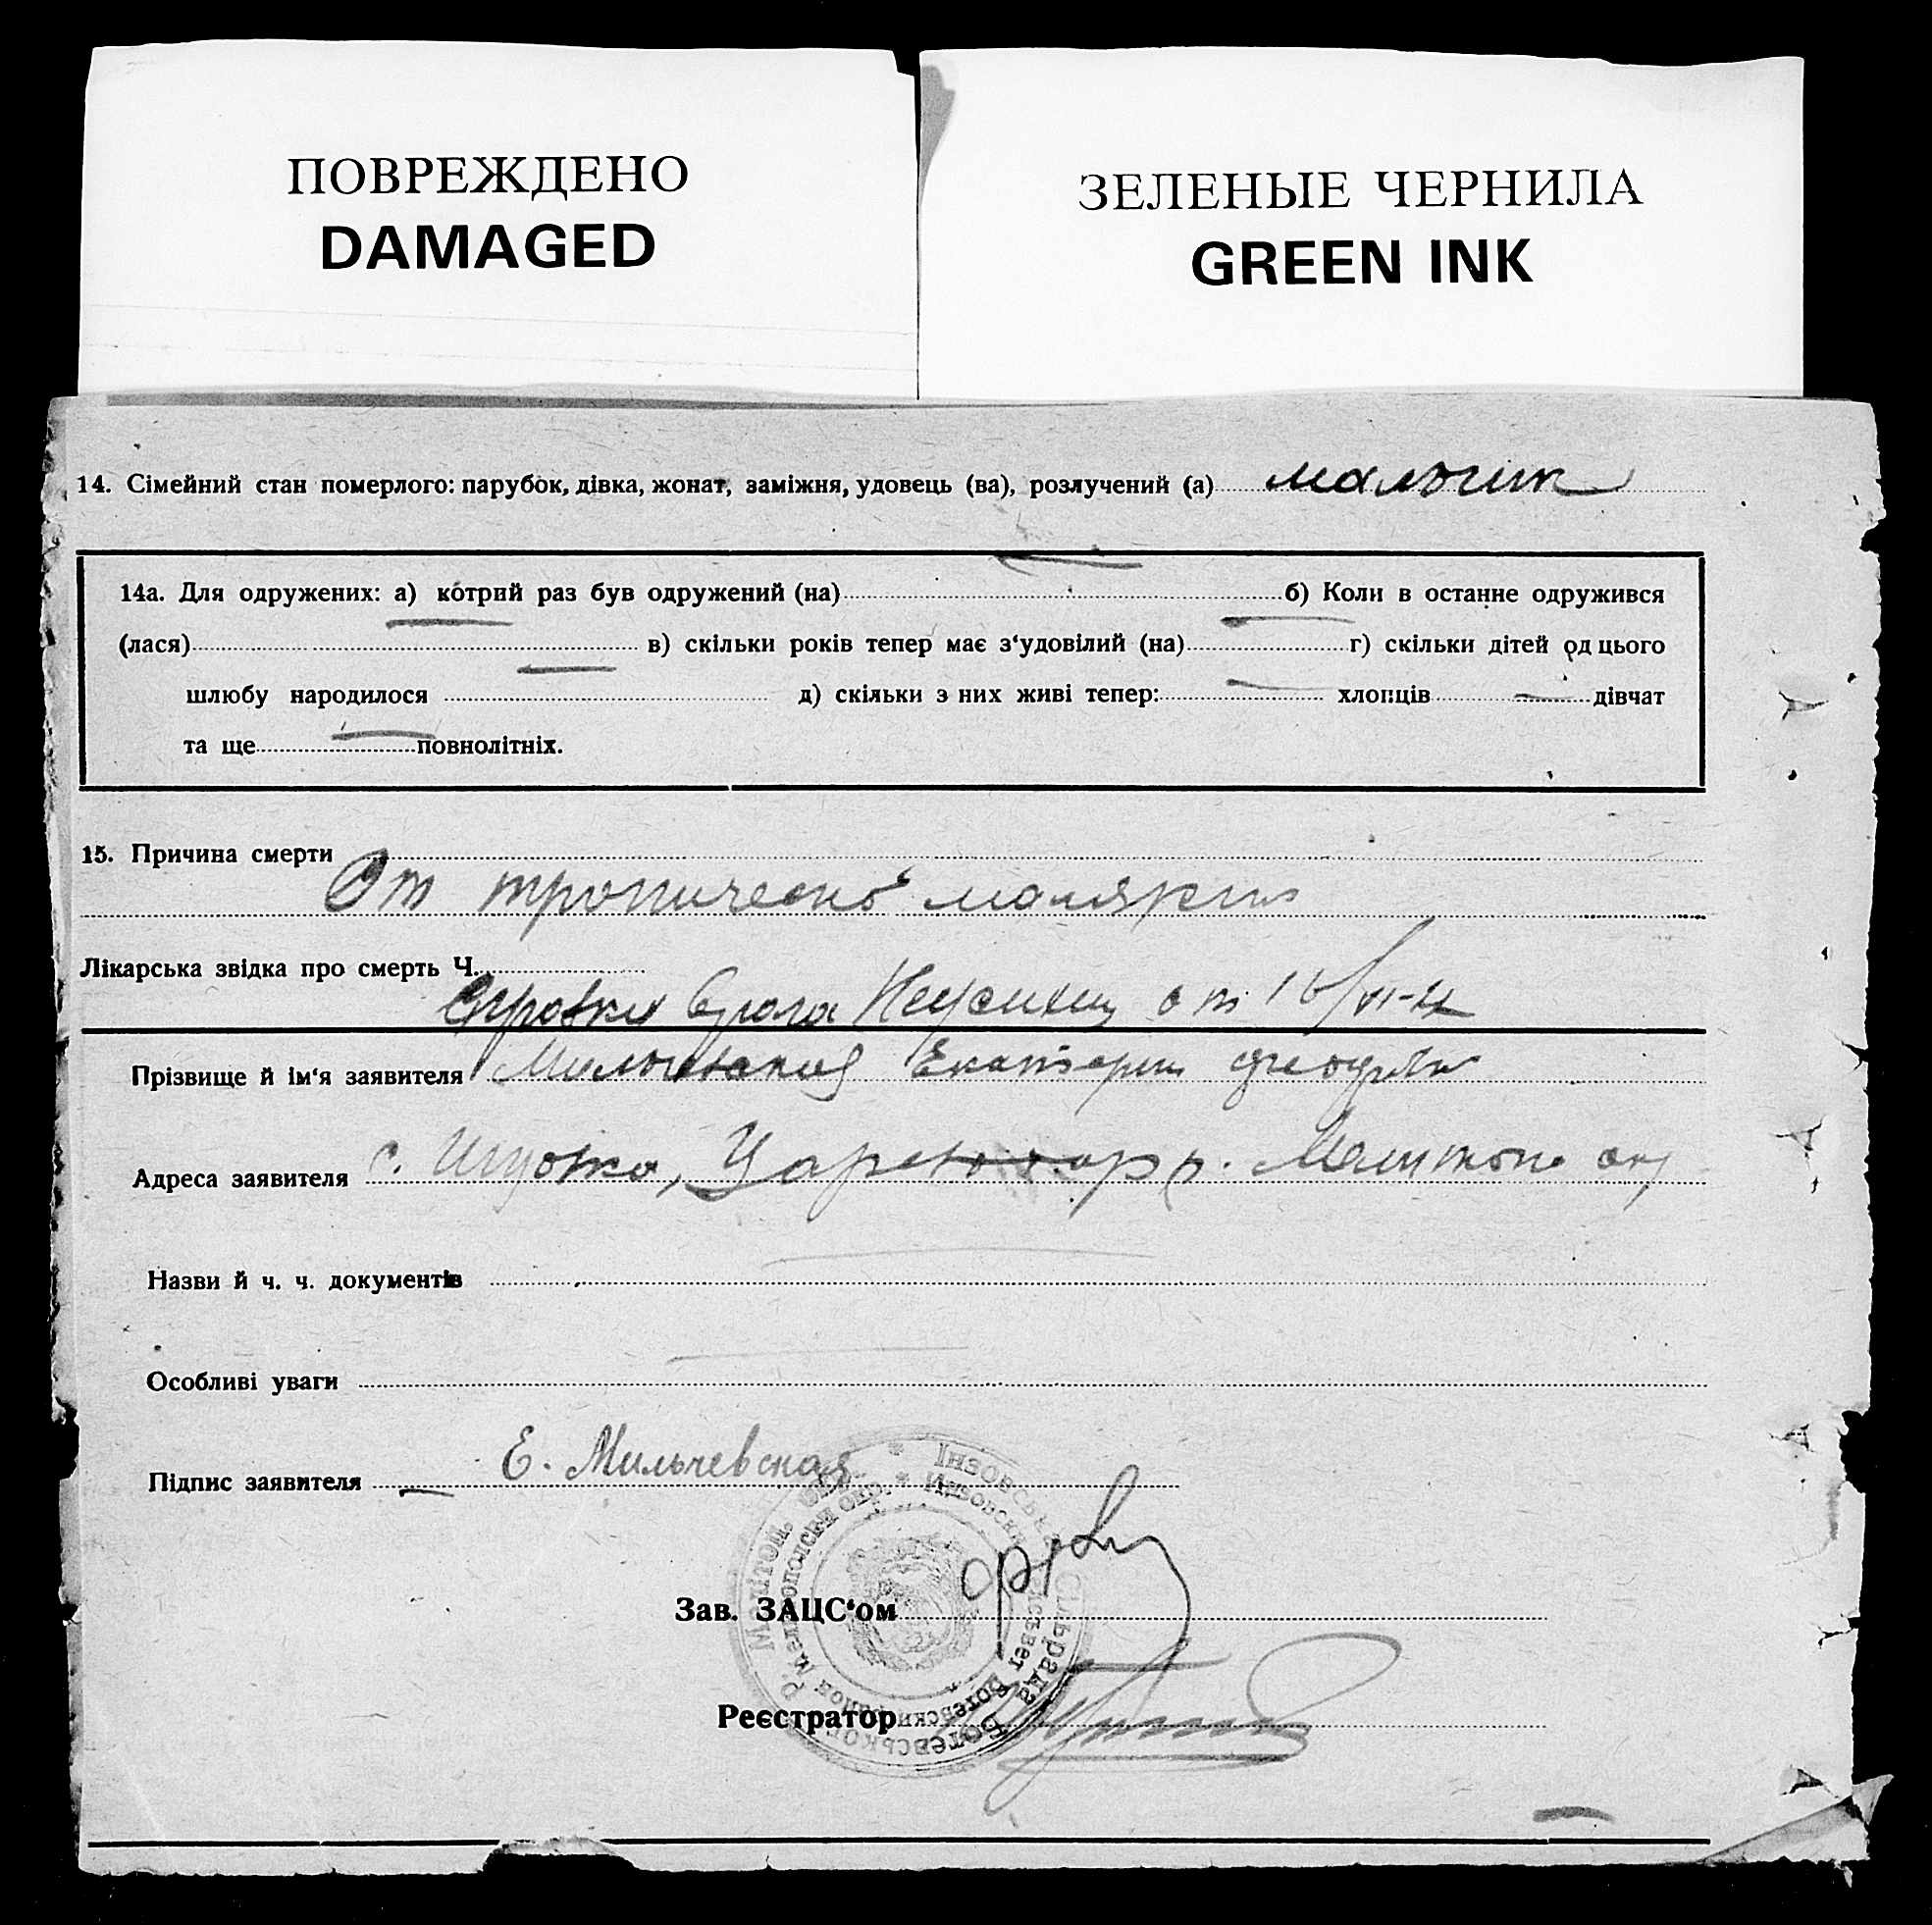 ПОВРЕЖДЕНО
DAMAGED
ЗЕЛЕНЫЕ ЧЕРНИЛА
GREEN INK
14. Сімейний стан померлого: парубок, дівка, жонат, заміжня, удовець (ва), розлучений (а) мальчик
14а. Для одружених: а) котрий раз був одружений (на) б) Коли в останнє одружився
(лася) в) скільки років тепер має з‘удовілий (на) г) скільки дітей од цього
шлюбу народилося д) скільки з них живі тепер: хлопців дівчат
та ще повнолітніх.
15. Причина смерти
От тропическо малярии
Лікарська звідка про смерть Ч.
Справка врача от
Прізвище й ім‘я заявителя
Адреса заявителя с.
Назви й ч. ч. документів
Особливі уваги
Підпис заявителя Е. Мильчевская
Зав. ЗАЦС‘ом
Реєстратор
Інзовська Сільрада Ботєвського р. Меліτοп. окр.